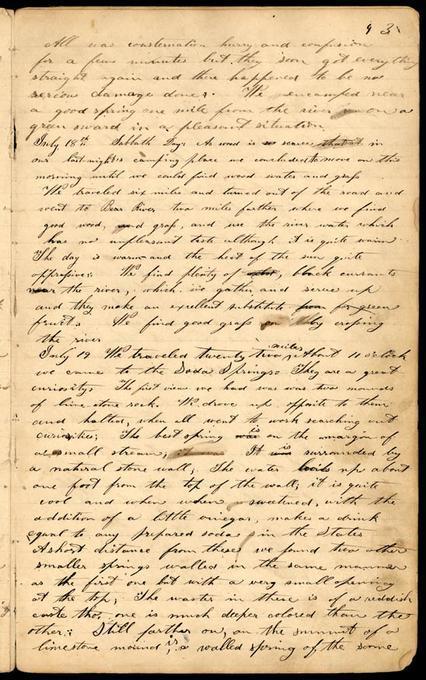 93
All was consternation hurry and confusion
for a few minutes but they soon got everything
straight again and there happened to be no
serious damage done. We encamped near
a good spring one mile from the river on a
green sward in a pleasant situation
July 18th Sabbath Day. As wood is so scarce in
our last night's camping place we concluded to move on this
morning until we could find wood water and grass
We traveled six miles and turned out of the road and
went to Bear River two miles farther where we find
good wood, and grass, and use the river water which
has no unpleasant taste although it is quite warm
The day is warm and the heat of the sun quite
oppressive. We find plenty of black currants
near the river, which we gather and serve up
and they make an excellent substitute for green
fruit. We find good grass by crossing
the river
July 19 We traveled twenty two miles, About 11 o'clock
we came to the Soda Springs. They are a great
curiosity. The first view we had was two mounds
of lime stone rock. We drove up opposite to them
and halted, when all went to work searching out
curiosities; The best spring is on the margin of
a small stream; It is surrounded by
a natural stone wall, The water boils up about
one foot from the top of the wall, it is quite
cool and when sweetened, with the
addition of a little vinegar, makes a drink
equal to any prepared soda in the States
A short distance from these we found two other
smaller springs walled in the same manner
as the first one but with a very small opening
at the top, The water in these is of a reddish
caste tho, one is much deeper colored than the
other: Still farther on, on the summit of a
limestone mound is a walled spring of the same